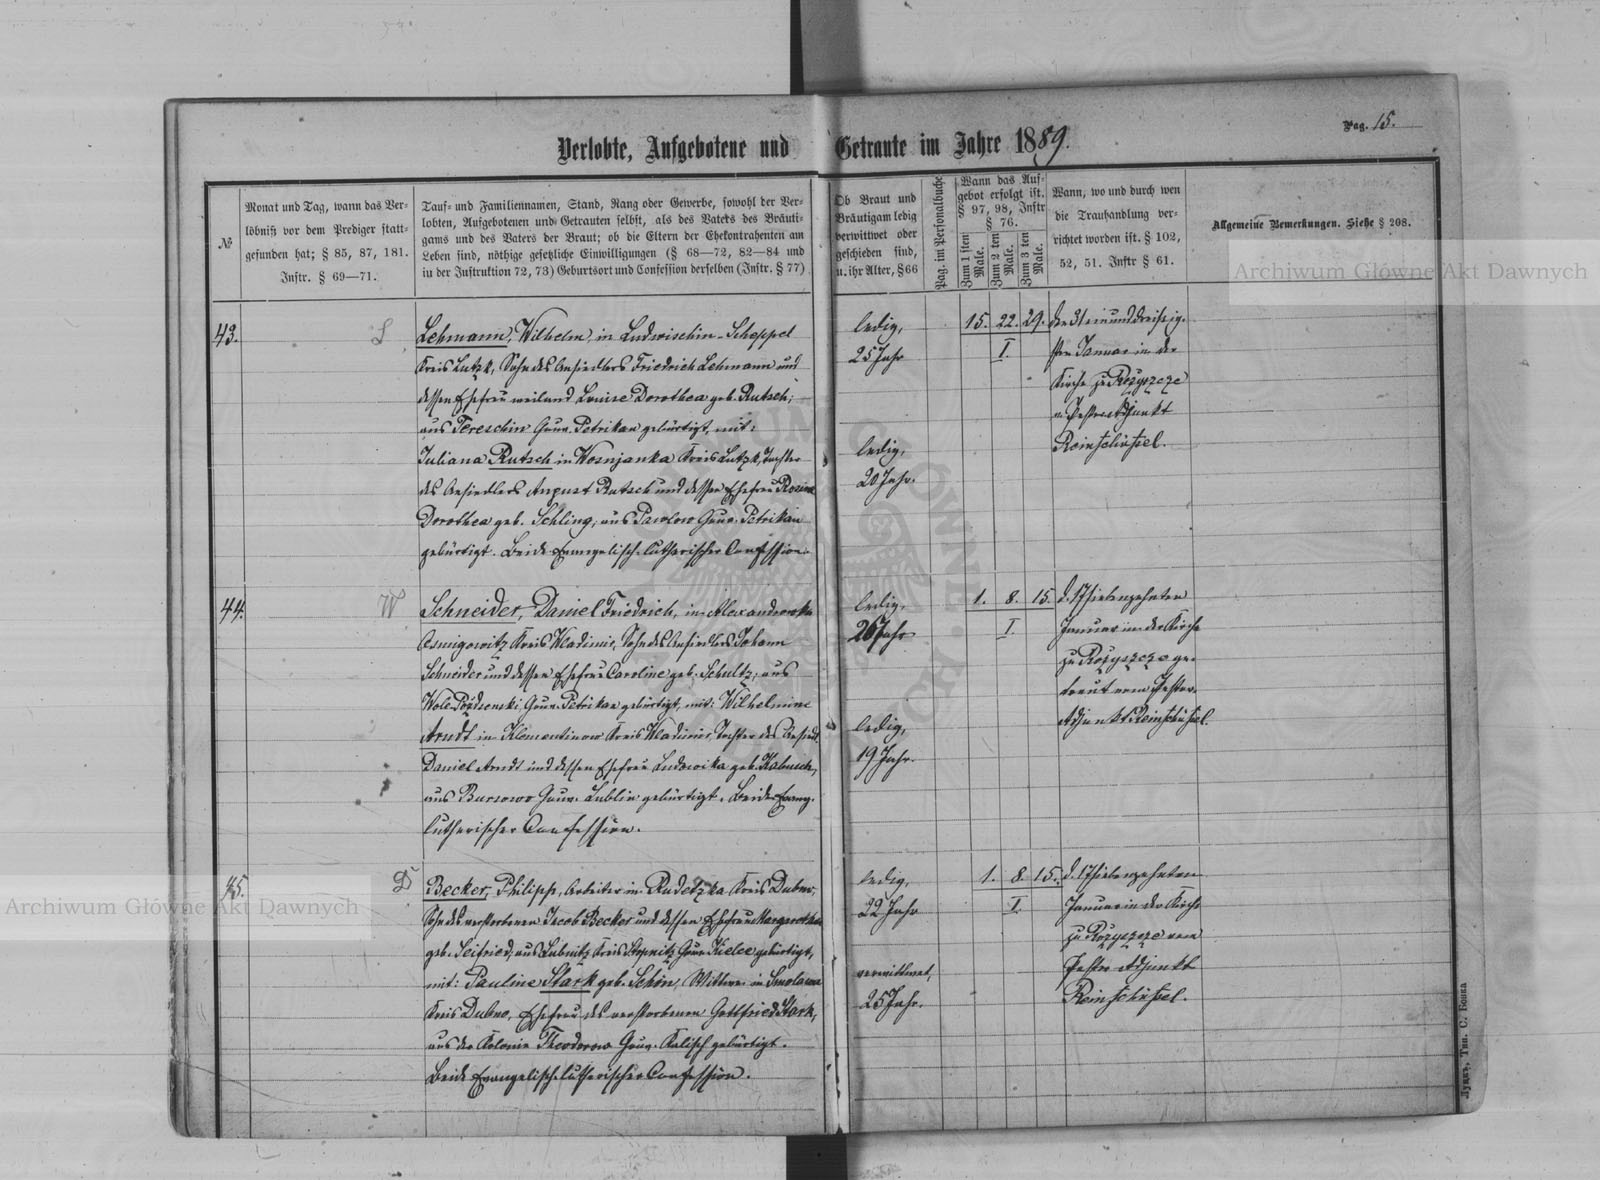 Verlobte, Aufgebotene und Getraute im Jahre 1889.
Pag. 15.
№
Monat und Tag, wann das Ver-
löbniß vor dem Prediger statt-
gefunden hat; § 85, 87, 181.
Instr. § 69—71.
Tauf- und Familiennamen, Stand, Rang oder Gewerbe, sowohl der Ver-
lobten, Aufgebotenen und Getrauten selbst, als des Vaters des Bräuti-
gams und des Vaters der Braut; ob die Eltern der Ehekontrahenten am
Leben sind, nöthige gesetzliche Einwilligungen (§ 68—72, 82—84 und
in der Instruktion 72, 73) Geburtsort und Confession derselben (Instr. § 77)
Ob Braut und
Bräutigam ledig
verwittwet oder
geschieden sind,
u. ihr Alter, § 66
Pag. im Personalbuche
Wann das Auf-
gebot erfolgt ist.
§ 97, 98, Instr
§ 76.
Zum 1 sten
Male.
Zum 2 ten
Male.
Zum 3 ten
Male.
Wann, wo und durch wen
die Trauhandlung ver-
richtet worden ist. § 102,
52, 51. Instr § 61.
Allgemeine Bemerkungen. Siehe § 208.
43.
L
Lehmann, Wilhelm, in Ludwischin-Scheppel
Kreis Lutzk, Sohn des Ansiedlers Friedrich Lehmann und
dessen Ehefrau weiland Louise Dorothea geb. Rutsch;
aus Tereschin Gouv. Petrikau gebürtigt, mit:
Juliana Rutsch in Wosnjanka Kreis Lutzk, Tochter
des Ansiedlers August Rutsch und dessen Ehefrau Rosine
Dorothea geb. Schling, aus Pawlow Gouv. Petrikau
gebürtigt. Beide Evangelisch-lutherischer Confession.
ledig,
25 Jahr
ledig,
20 Jahr.
15. 22. 29.
I.
den 31 einunddreißig-
sten Januar in der
Kirche zu Rożyszcze
v. Pastor-Adjunkt
Reinh
44.
W
Schneider, Daniel Friedrich, in Alexandrowka
Kreis Wladimir, Sohn des Ansiedlers Johann
Schneider und dessen Ehefrau Caroline geb. Schultz, aus
Gouv. Petrikau gebürtigt, mit: Wilhelmine
Arndt in Klementinow Kreis Wladimir, Tochter des Ansiedl.
Daniel Arndt und dessen Ehefrau Ludowika geb. Kabusch,
aus Bursowo Gouv. Lublin gebürtigt. Beide Evang.
lutherischer Confession.
ledig,
26 Jahr
ledig,
19 Jahr.
1. 8. 15.
I.
d. 17 siebenzehnten
Januar in der Kirche
zu Rożyszcze ge-
traut vom Pastor-
Adjunkt
45.
D
Becker, Philipp, Arbeiter in Rudetzka Kreis Dubno,
Sohn des verstorbenen Jacob Becker und dessen Ehefrau Margaretha
geb. Seifried, aus Lubnitz Kreis Stopnitz Gouv. Kielce gebürtigt,
mit: Pauline Stark geb. Schön, Wittwe in Smolawa
Kreis Dubno, Ehefrau des verstorbenen Gottfried Stark,
aus der Kolonie Theodorow Gouv. Kalisch gebürtigt.
Beide Evangelisch-lutherischer Confession.
ledig,
22 Jahr
verwittwet,
25 Jahr.
1. 8. 15.
I.
d. 17 siebenzehnten
Januar in der Kirche
zu Rożyszcze vom
Pastor-Adjunkt
Луцкъ, Тип. С. Бонка
Archiwum Główne Akt Dawnych
Archiwum Główne Akt Dawnych